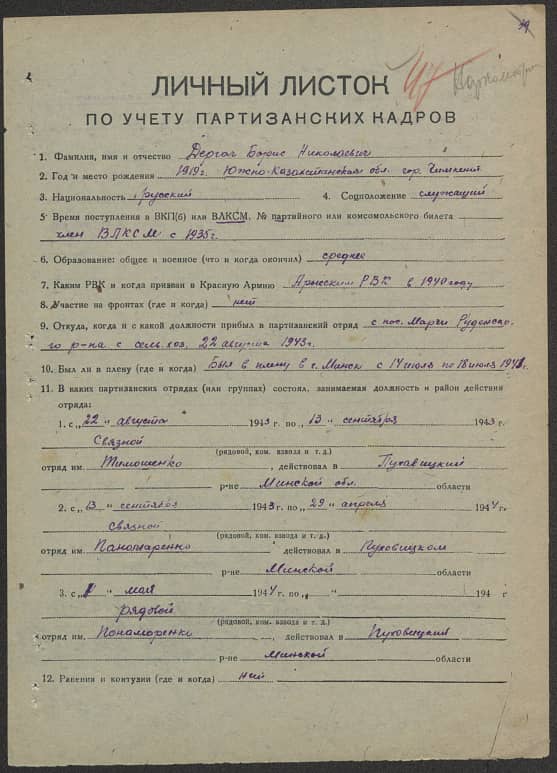 49
47
ЛИЧНЫЙ ЛИСТОК
ПО УЧЕТУ ПАРТИЗАНСКИХ КАДРОВ
1. Фамилия, имя и отчество Дергач Борис Николаевич
2. Год и место рождения 1919г. Южно-Казахстанская обл. гор. Чимкент
3. Национальность русский 4. Соцположение служащий
5. Время поступления в ВКП(б) или ВЛКСМ, № партийного или комсомольского билета
член ВЛКСМ с 1935г.
6. Образование: общее и военное (что и когда окончил) среднее
7. Каким РВК и когда призван в Красную Армию Арысским РВК в 1940 году
8. Участие на фронтах (где и когда) нет
9. Откуда, когда и с какой должности прибыл в партизанский отряд с пос. Марьи Руденско-
го р-на с сель.хоз. 22 августа 1943г.
10. Был ли в плену (где и когда) Был в плену в г. Минск с 14 июля по 18 июля 1941г.
11. В каких партизанских отрядах (или группах) состоял, занимаемая должность и район действия
отряда:
1. с „22" августа 1943 г. по „13" сентября 1943 г.
Связной
(рядовой, ком. взвода и т. д.)
отряд им. Тимошенко, действовал в Пуховицкий
р-не Минской обл. области
2. с „13" сентября 1943 г. по „29" апреля 1944 г.
связной
(рядовой, ком. взвода и т. д.)
отряд им. Панамаренко, действовал в Пуховицком
р-не Минской области
3. с „1" мая 1944 г. по „ " 194 г
рядовой
(рядовой, ком. взвода и т. д.)
отряд им. Понаморенко, действовал в Пуховицкий
р-не Минской области
12. Ранения и контузии (где и когда) нет